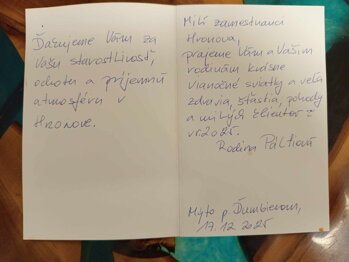 Ďakujeme Vám za
Vašu starostlivosť,
ochotu a príjemnú
atmosféru v
Hronove.
Milí zamestnanci
Hronova,
prajeme Vám a Vašim
rodinám krásne
vianočné sviatky a veľa
zdravia, šťastia, pohody
a milých klientov
v r. 2025.
Rodina Páltiová
Mýto p. Ďumbierom,
17.12.2025